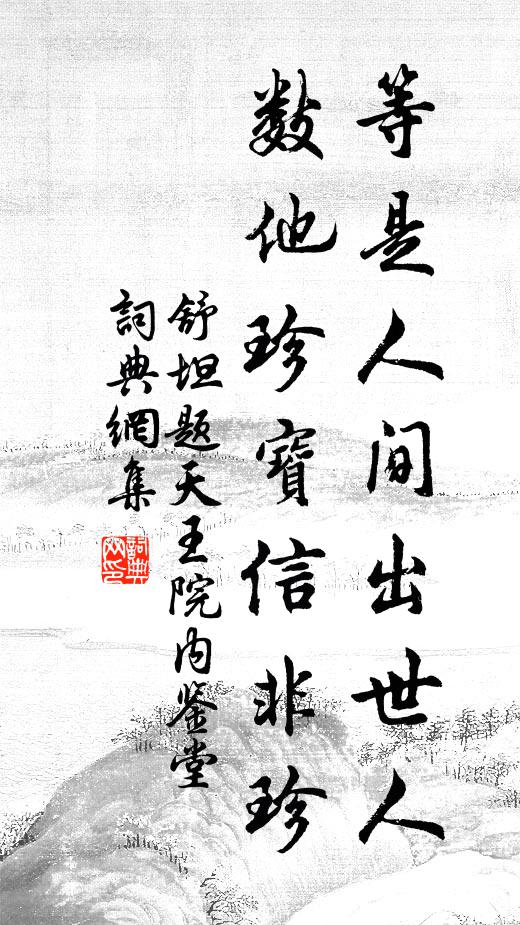 等是人间出世人
数他珍寶信非珍
舒坦题天王院内鉴堂
詞典網集
詞典网印